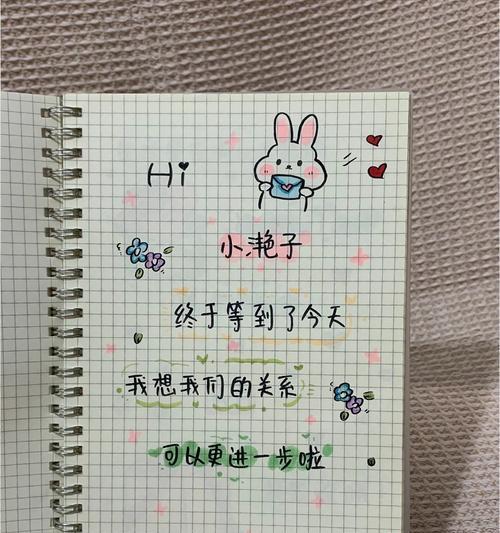 Hi
小滟子
终于等到了今天
我想我们的关系
可以更进一步啦